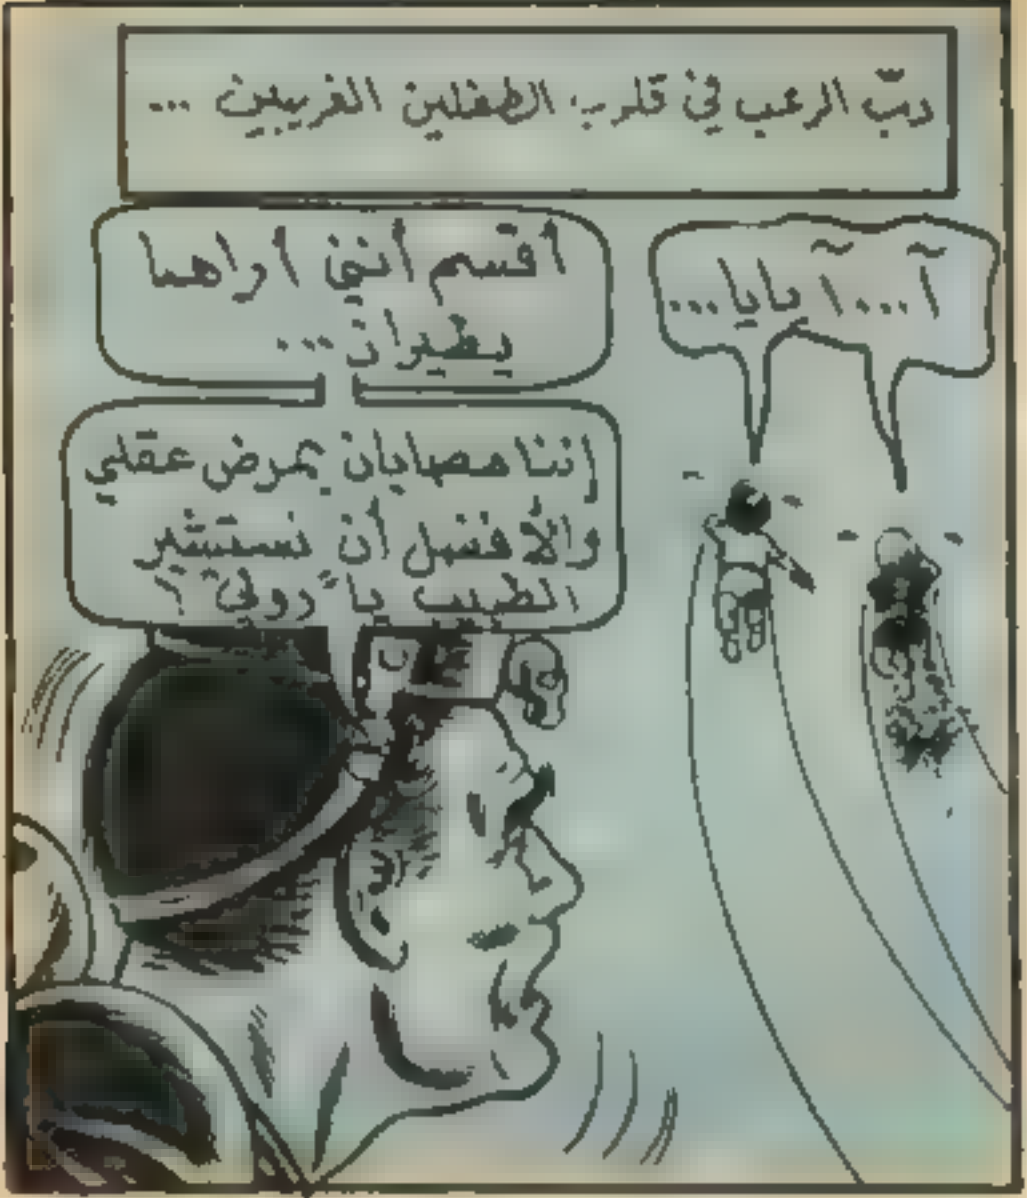 دبّ الرعب في قلوب الطفلين الغريبين ...
آ...آ بابا...
أقسم أنني أراهما
يطيران ...
إننا مصابان بمرض عقلي
والأفضل أن نستشير
الطبيب يا "رولي" ؟